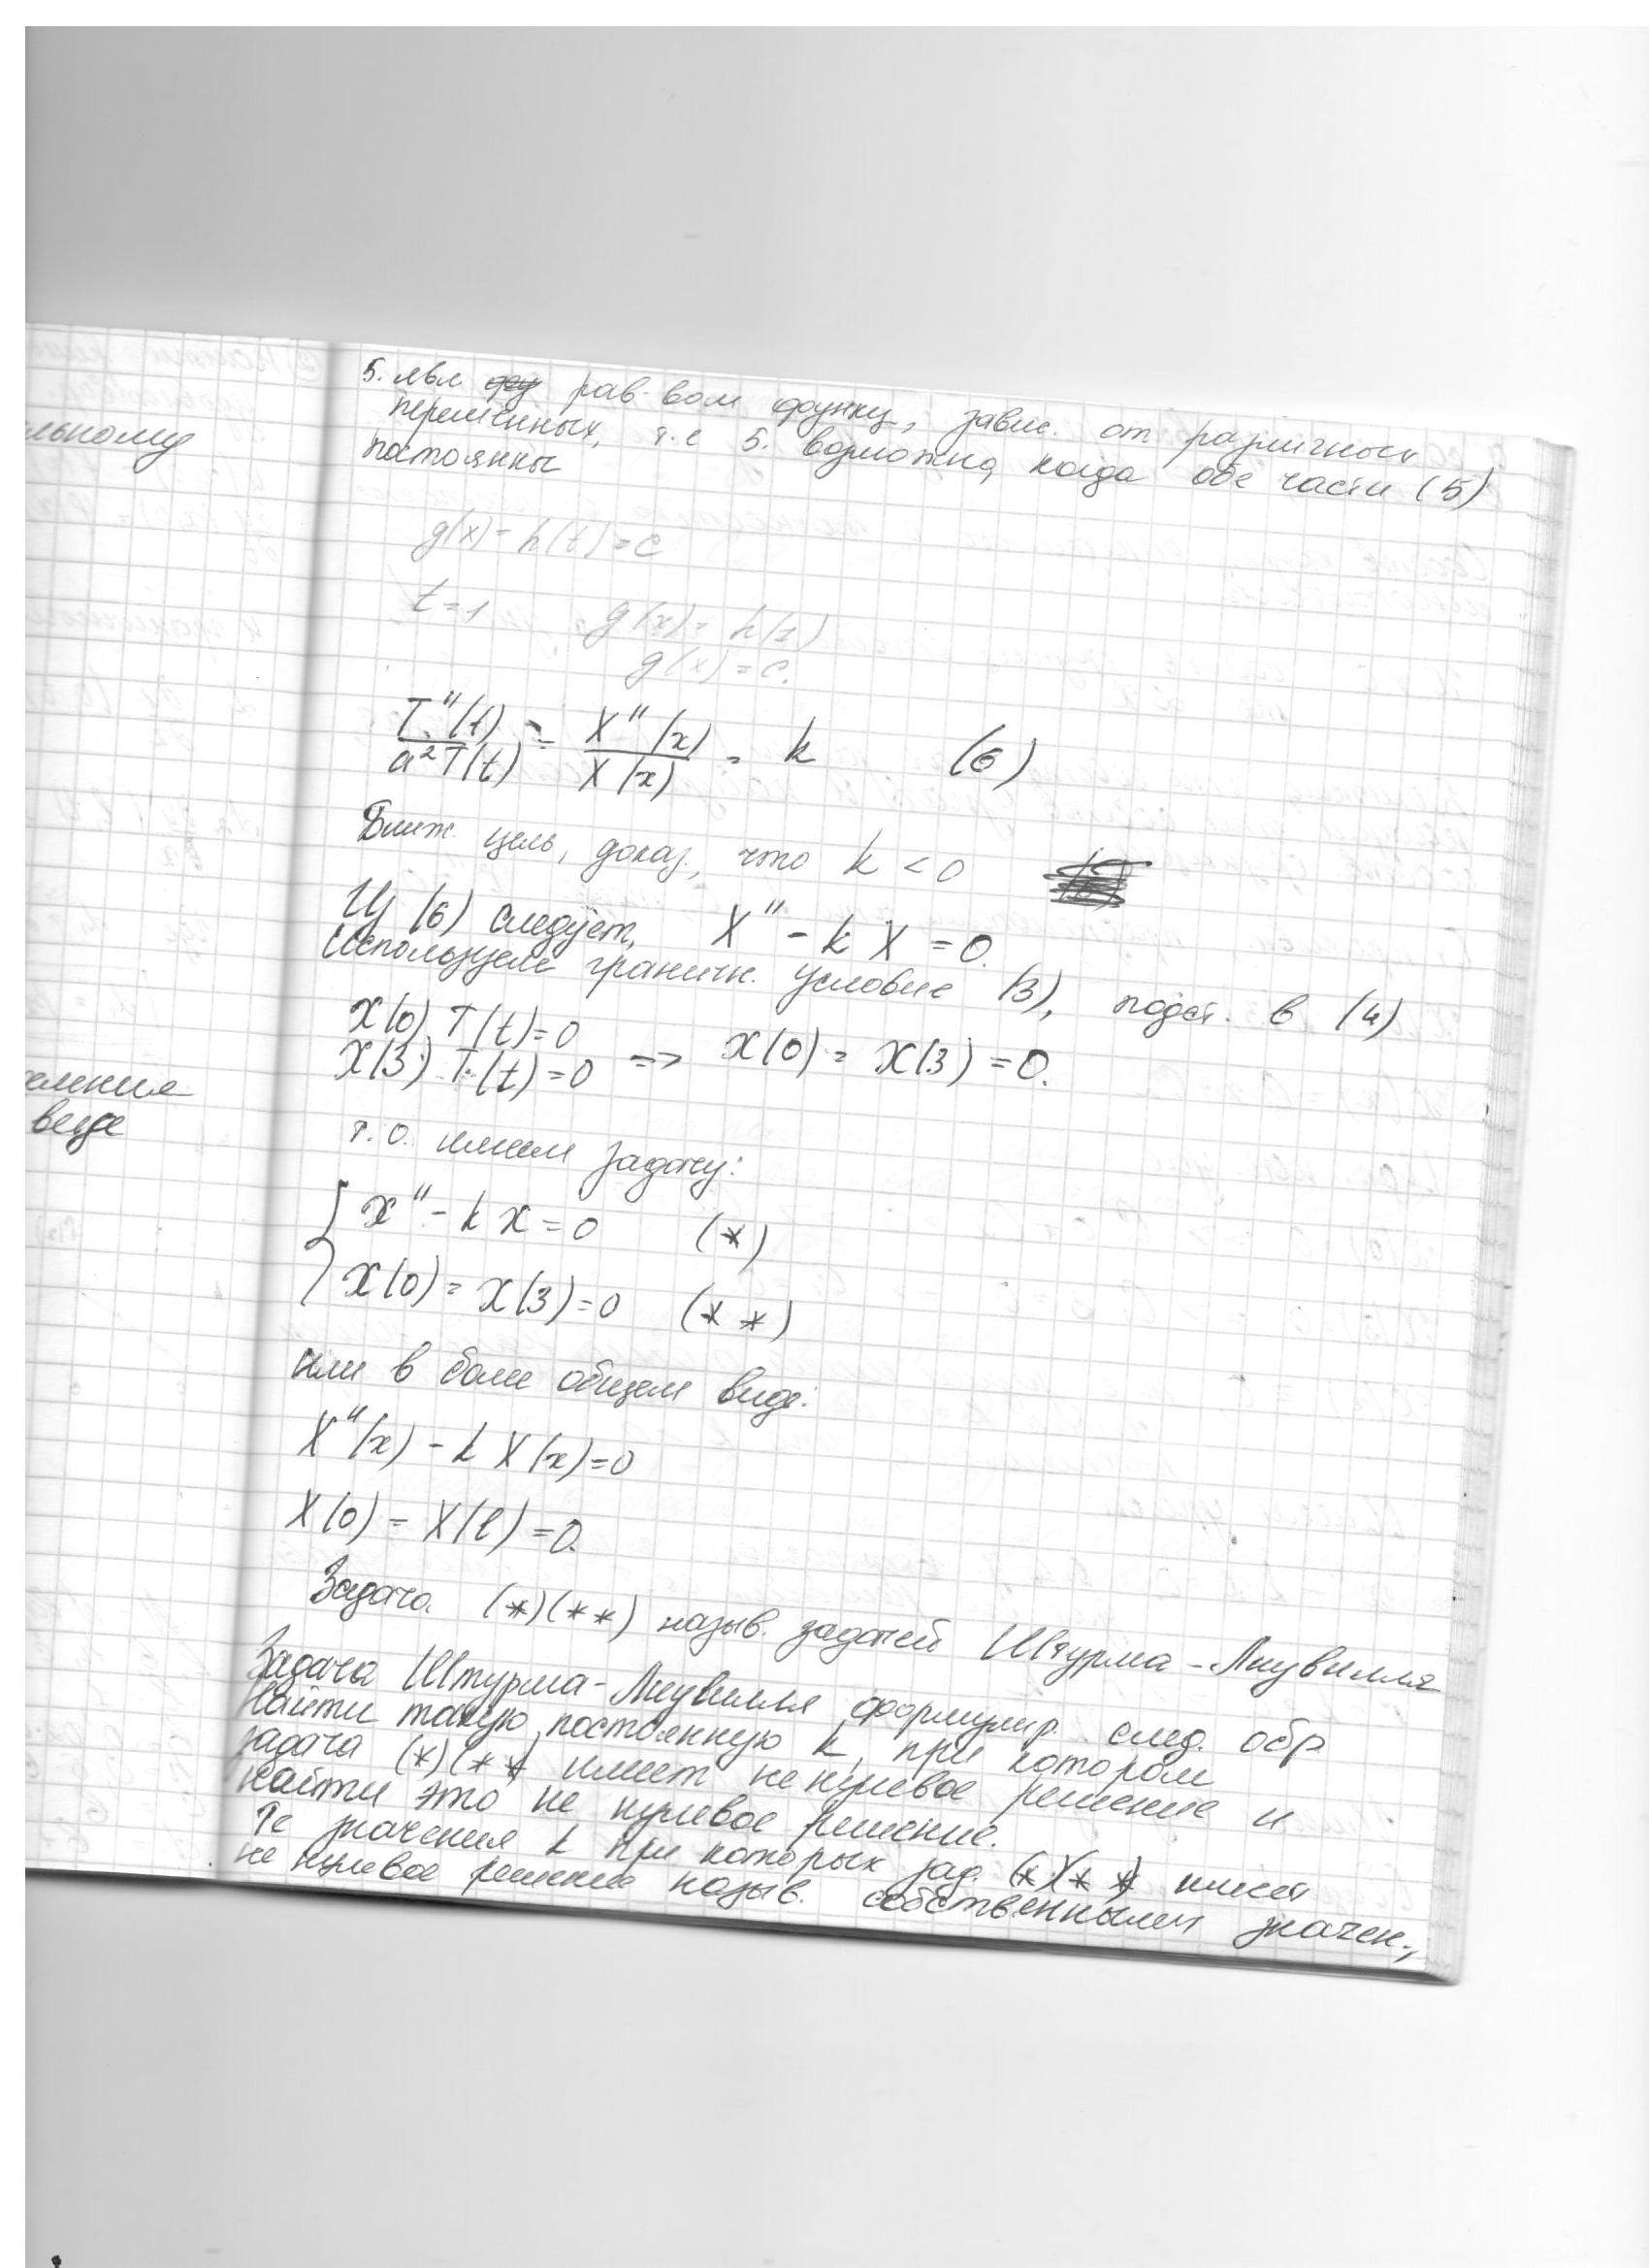 льному
еления
веде
5. явл рав-вом функц, завис. от различных
переменных, т.е 5. возможно, когда обе части (5)
постоянны
g(x) = h(t) = c
t=1 g(x) = h(1)
g(x) = c.
T''(t)/a²T(t) = X''(x)/X(x) = k (6)
Ближ. цель, доказ, что k < 0
Из (6) следует, X'' - k X = 0.
Используем граничн. условие (3), подст. в (4)
X(0) T(t)=0
X(3) T(t)=0 => X(0) = X(3) = 0.
т.о. имеем задачу:
{ X'' - k X = 0 (*)
X(0) = X(3) = 0 (* *)
или в более общем виде:
X''(x) - k X(x)=0
X(0) = X(l) = 0.
Задача (*)(**) назыв. задачей Штурма-Лиувилля
Задача Штурма-Лиувилля формулир. след. обр
найти такую постоянную k, при котором
задача (*)(**) имеет ненулевое решение и
найти это не нулевое решение.
Те значения k при которых зад. (*)(**) имеет
не нулевое решение назыв. собственными значен.,